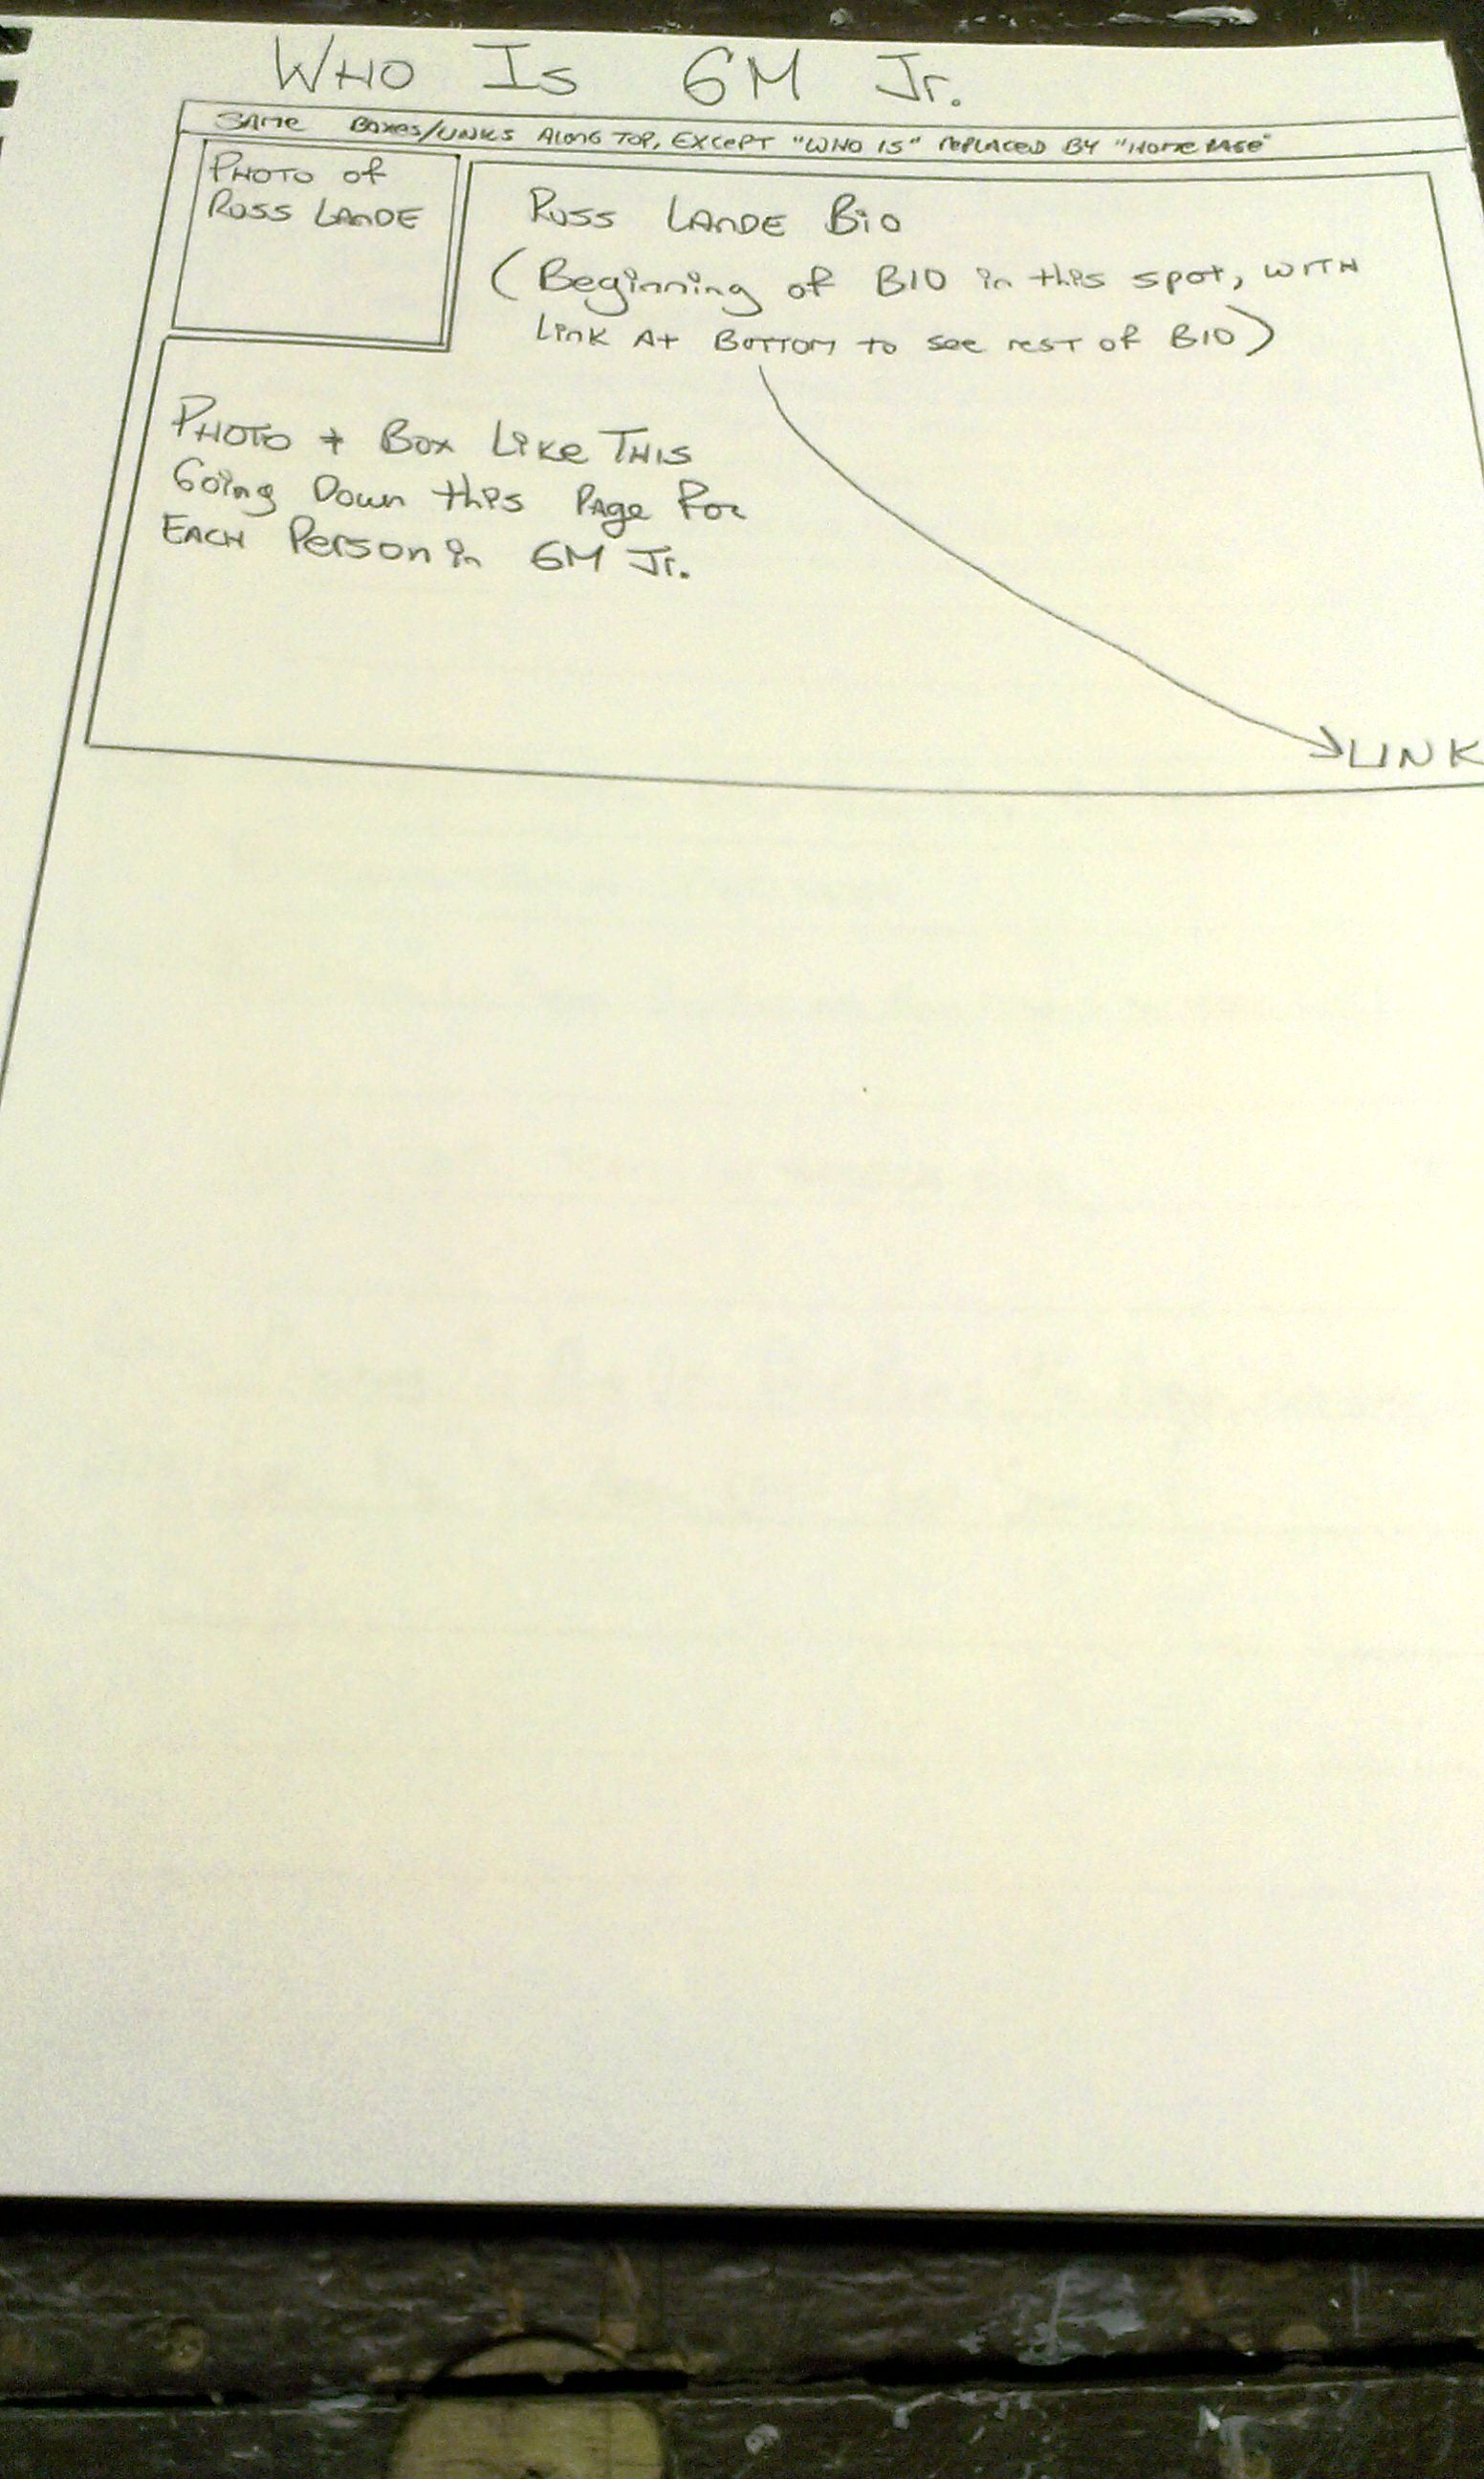 WHO IS GM Jr.
SAME BOXES/LINKS ALONG TOP, EXCEPT "WHO IS" REPLACED BY "HOME PAGE"
PHOTO of
ROSS LANDE
ROSS LANDE BiO
(Beginning of BIO in this spot, WITH
Link At BOTTOM to see rest of BIO)
PHOTO + BOX LiKe THIS
Going Down this PAge For
EACH Person in GM Jr.
LINK